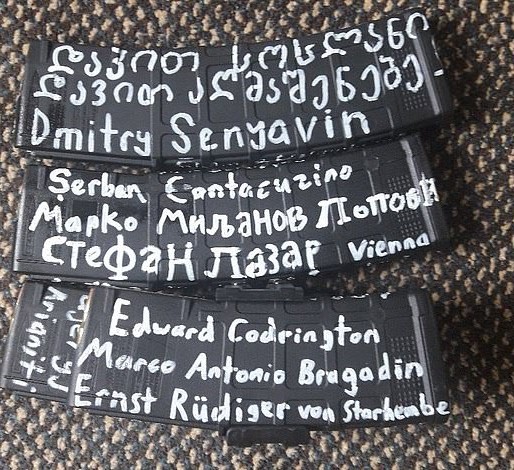 დავით სოსლანი
დავით აღმაშენებე-
Dmitry Senyavin
Şerban Cantacuzino
Марко Миљанов Попови
Стефан Лазар Vienna
Edward Codrington
Marco Antonio Bragadin
Ernst Rüdiger von Starhembe